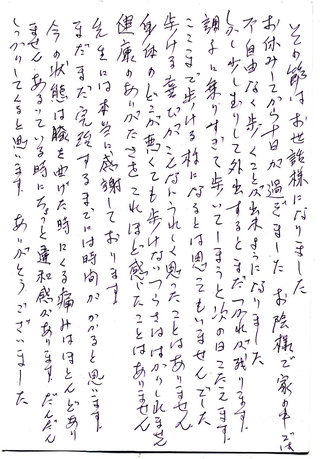 その節はお世話様になりました
お休みしてから十日が過ぎました お陰様で家の中では
不自由なく歩くことが出来るようになりました
しかし少し出かりして外出するとまだつかれが残ります
調子に乗りすぎて歩いてしまうと次の日こたえます
ここまで歩ける様になるとは思ってもいませんでした
歩ける喜びがこんなにうれしく思ったことはありません
身体のどこが悪くても歩けないつらさははかりしれません
健康のありがたさをこれほど感じたことはありません
先生には本当に感謝しております
まだまだ完治するまでには時間がかかると思います
今の状態は膝を曲げた時にくる痛みはほとんどあり
ません あるいている時にちょっと違和感があります だんだん
しっかりしてくると思います ありがとうございました